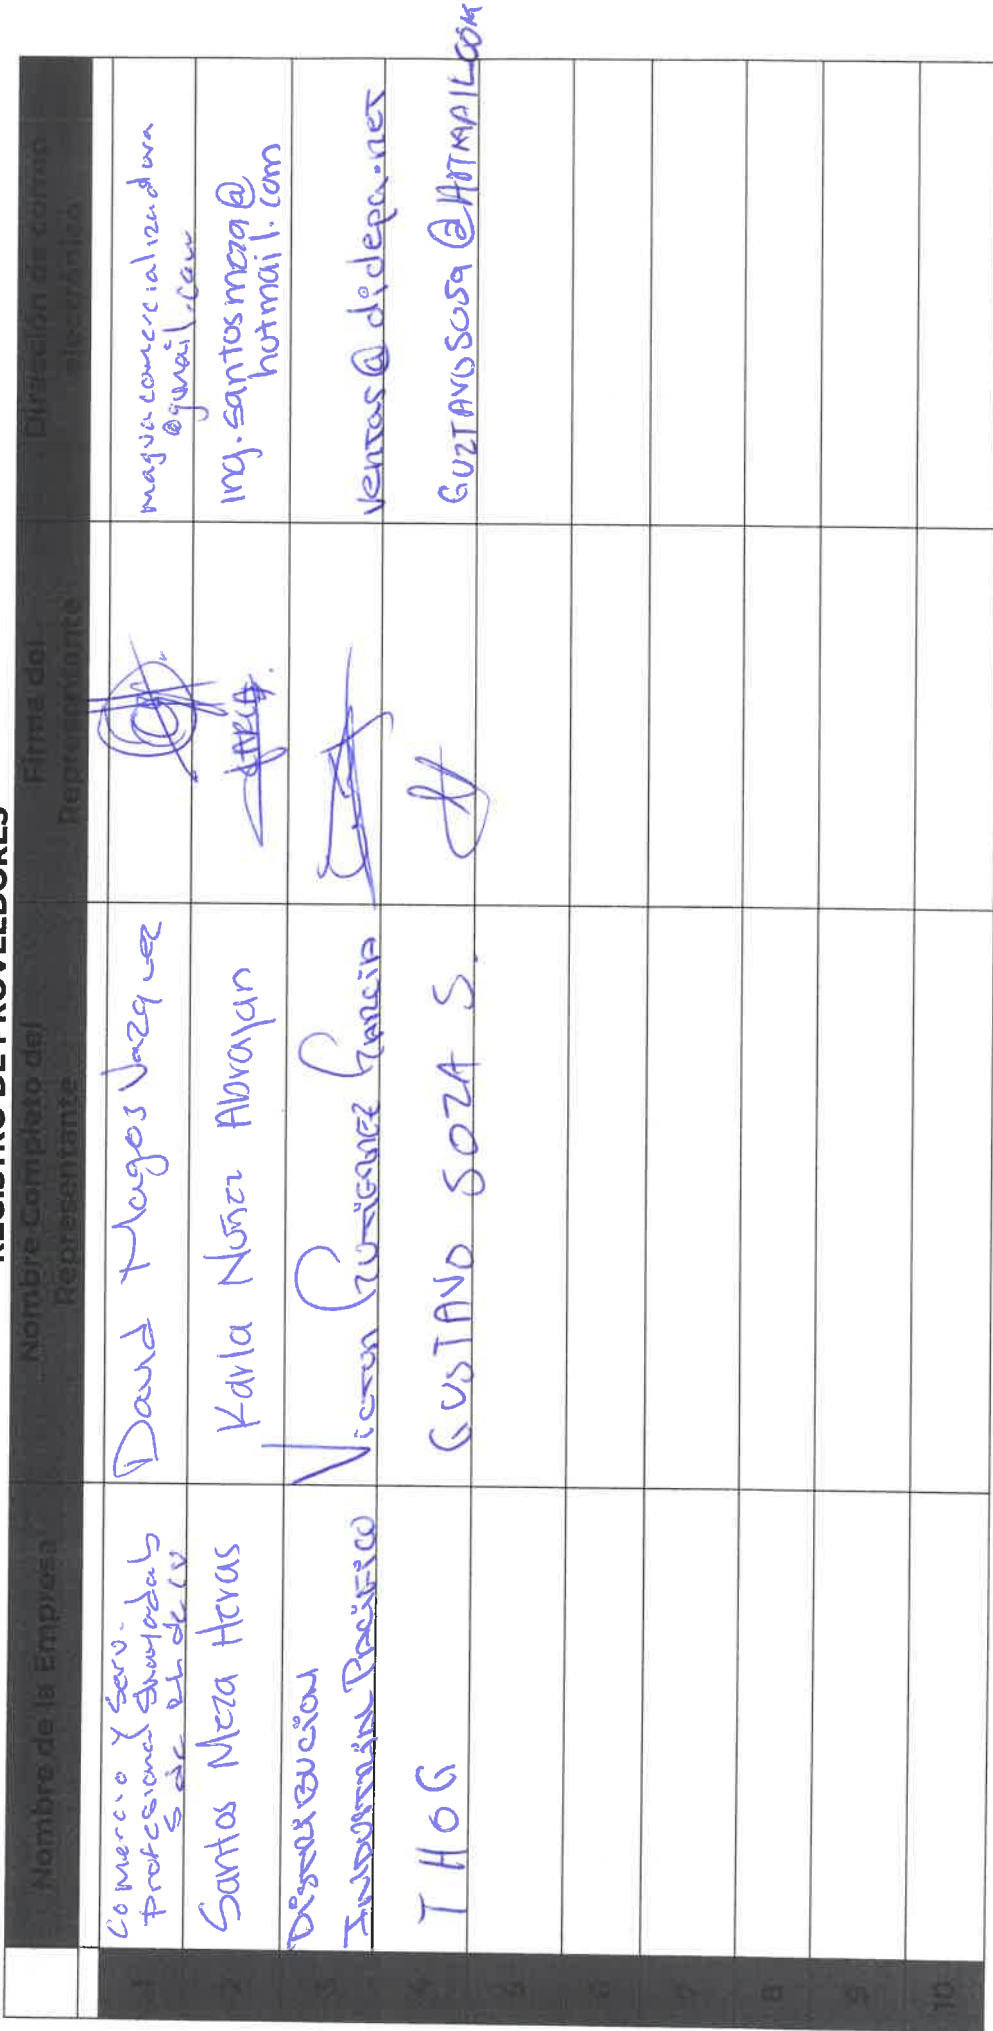 REGISTRO DE PROVEEDORES
Nombre de la Empresa
Nombre Completo del
Representante
Firma del
Representante
Dirección de correo
electrónico
1
Comercio y Serv.
Profesional
S de RL de CV
David Magos Vazquez
magvacomercializadora
@gmail.com
2
Santos Meza Heras
Karla Nuñez Abrajan
ing.santosmeza@
hotmail.com
3
DISTRIBUCION
INDUSTRIAL PACIFICO
VICTOR GUTIERREZ GARCIA
ventas@didepa.net
4
THOG
GUSTAVO SOZA S.
GUZTAVOSOSA@HOTMAIL.COM
5
6
7
8
9
10